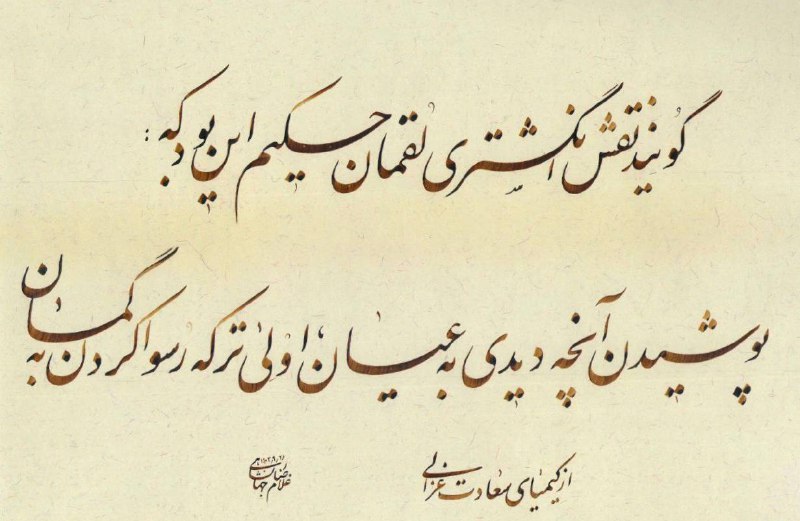 گویند نقش انگشتری لقمان حکیم این بود که:
پوشیدن آنچه دیدی به عیان، اولیٰ‌تر که رسوا کردن به گمان
از کیمیای سعادت غزالی
غلامرضا